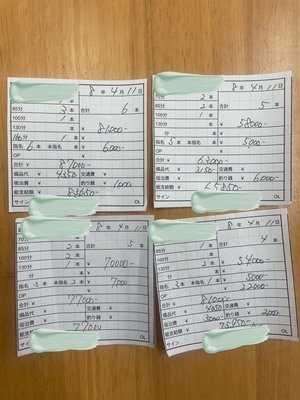 8年4月11日
1本
85分 3本 合計 6本
100分 1本
130分 本 ¥ 81000-
160分 1本
指名 6本 本指名 本 ¥ 6000-
OP
合計 ¥ 87000-
備品代 ¥ 4350 交通費 ¥
宿泊費 ¥ 釣り銭 ¥ 1000
総支給額 ¥ 83650-
サイン OL
8年4月11日
2本
85分 2本 合計 5本
100分 1本
130分 本 ¥ 58000-
分 本 ¥
指名 5本 本指名 本 ¥ 5000-
OP
合計 ¥ 63000-
備品代 ¥ 3150 交通費 ¥
宿泊費 ¥ 釣り銭 ¥ 6000
総支給額 ¥ 65850-
サイン OL
8年4月11日
70分
85分 2本 合計 5本
100分 2本
130分 1本 ¥ 70000-
分 本 ¥
指名 本 本指名 2本 ¥ 7000
OP ¥
合計 ¥ 77000-
備品代 ¥ 交通費 ¥
宿泊費 ¥ 釣り銭 ¥
総支給額 ¥ 77000
サイン OL
8年4月11日
85分 1本 合計 4本
100分 2本
130分 本 ¥ 54000-
1本
指名 3本 本指名 1本 ¥ 5000
OP 22000-
合計 ¥ 81000-
備品代 ¥ 4050 交通費 ¥
宿泊費 ¥ 3000 釣り銭 ¥ 2000
総支給額 ¥ 75950-
サイン OL